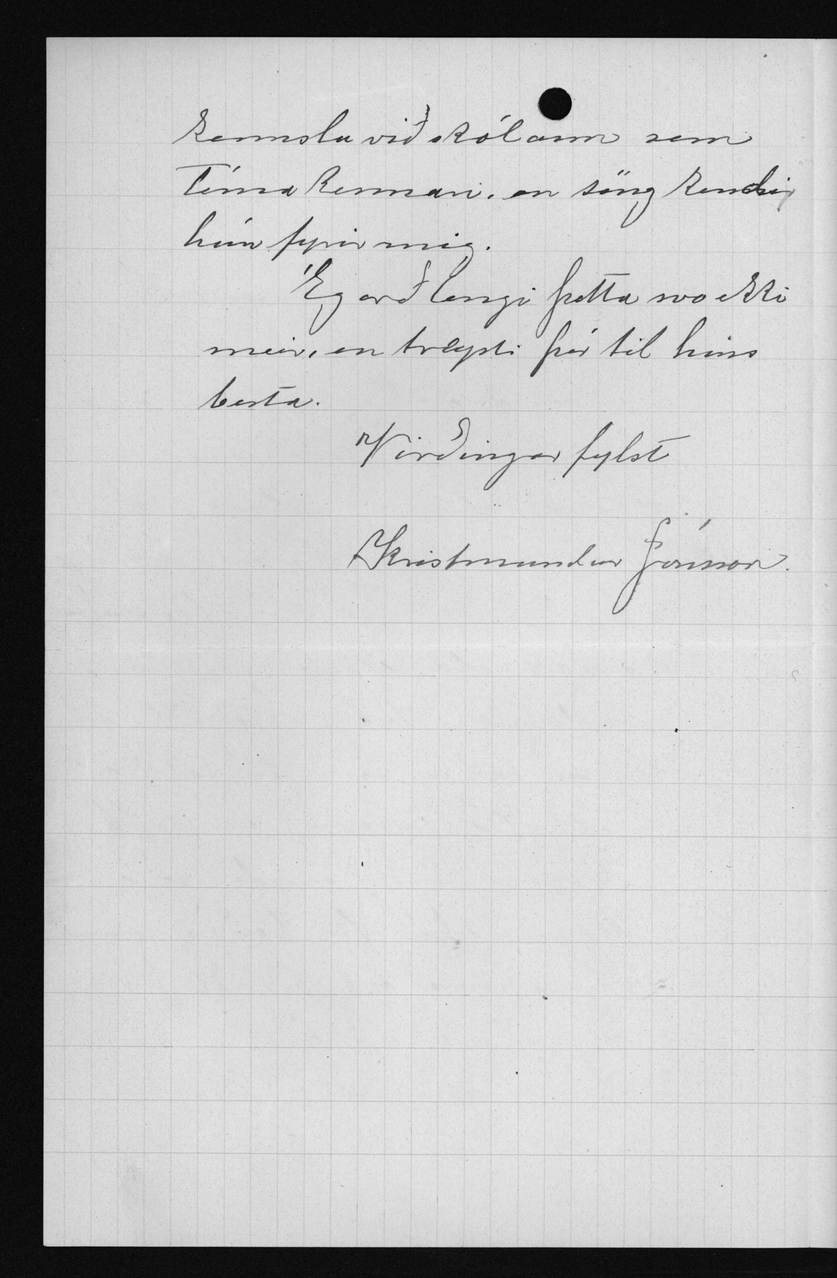 kennslu við skólann sem
Tímakennari, en söng kendi
hún fyrir mig.
Eg orðlengi þetta svo ekki
meir, en treysti þér til hins
besta.
Virðingarfylst
Kristmundur Jónsson.